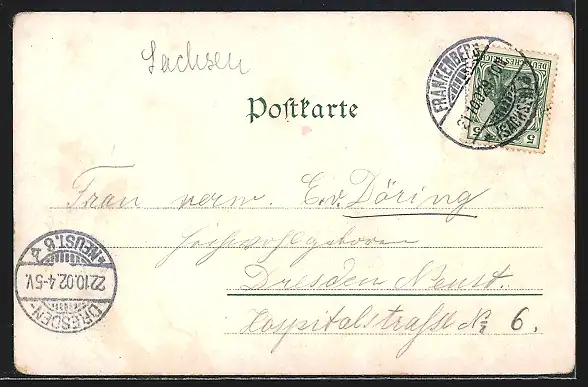 Sachsen
Postkarte
FRANKENBERG
(SACHSEN)
21.10.02
DEUTSCHES REICH
5 5
Frau verw. E.v. Döring
Hochwohlgeboren
Dresden Neust.
Hospitalstraße No 6.
DRESDEN-
22.10.02.4-5V.
*NEUST.8 4